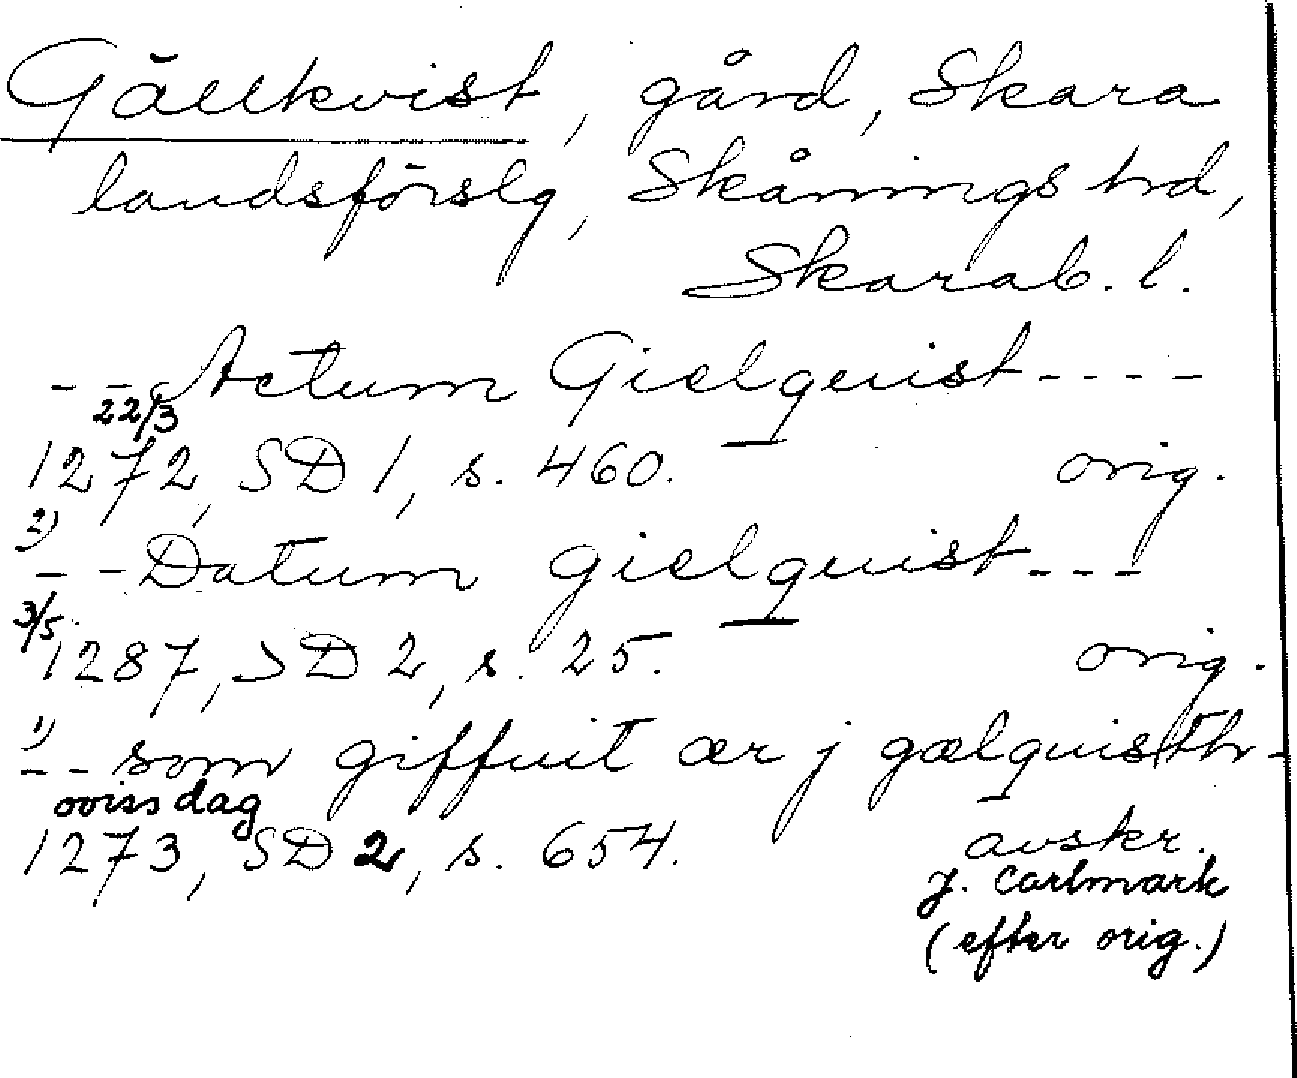 Gällkvist, gård, Skara
landsförslg, Skånings hd,
Skarab. l.
- - Actum Gielquist - - - -
22/3
1272, SD 1, s. 460. orig.
2)
- - Datum gielquist - - -
3/5
1287, SD 2, s. 25. orig.
1)
- - som giffuit ær j gælquisth -
oviss dag
1273, SD 2, s. 654. avskr.
J. Carlmark
(efter orig.)